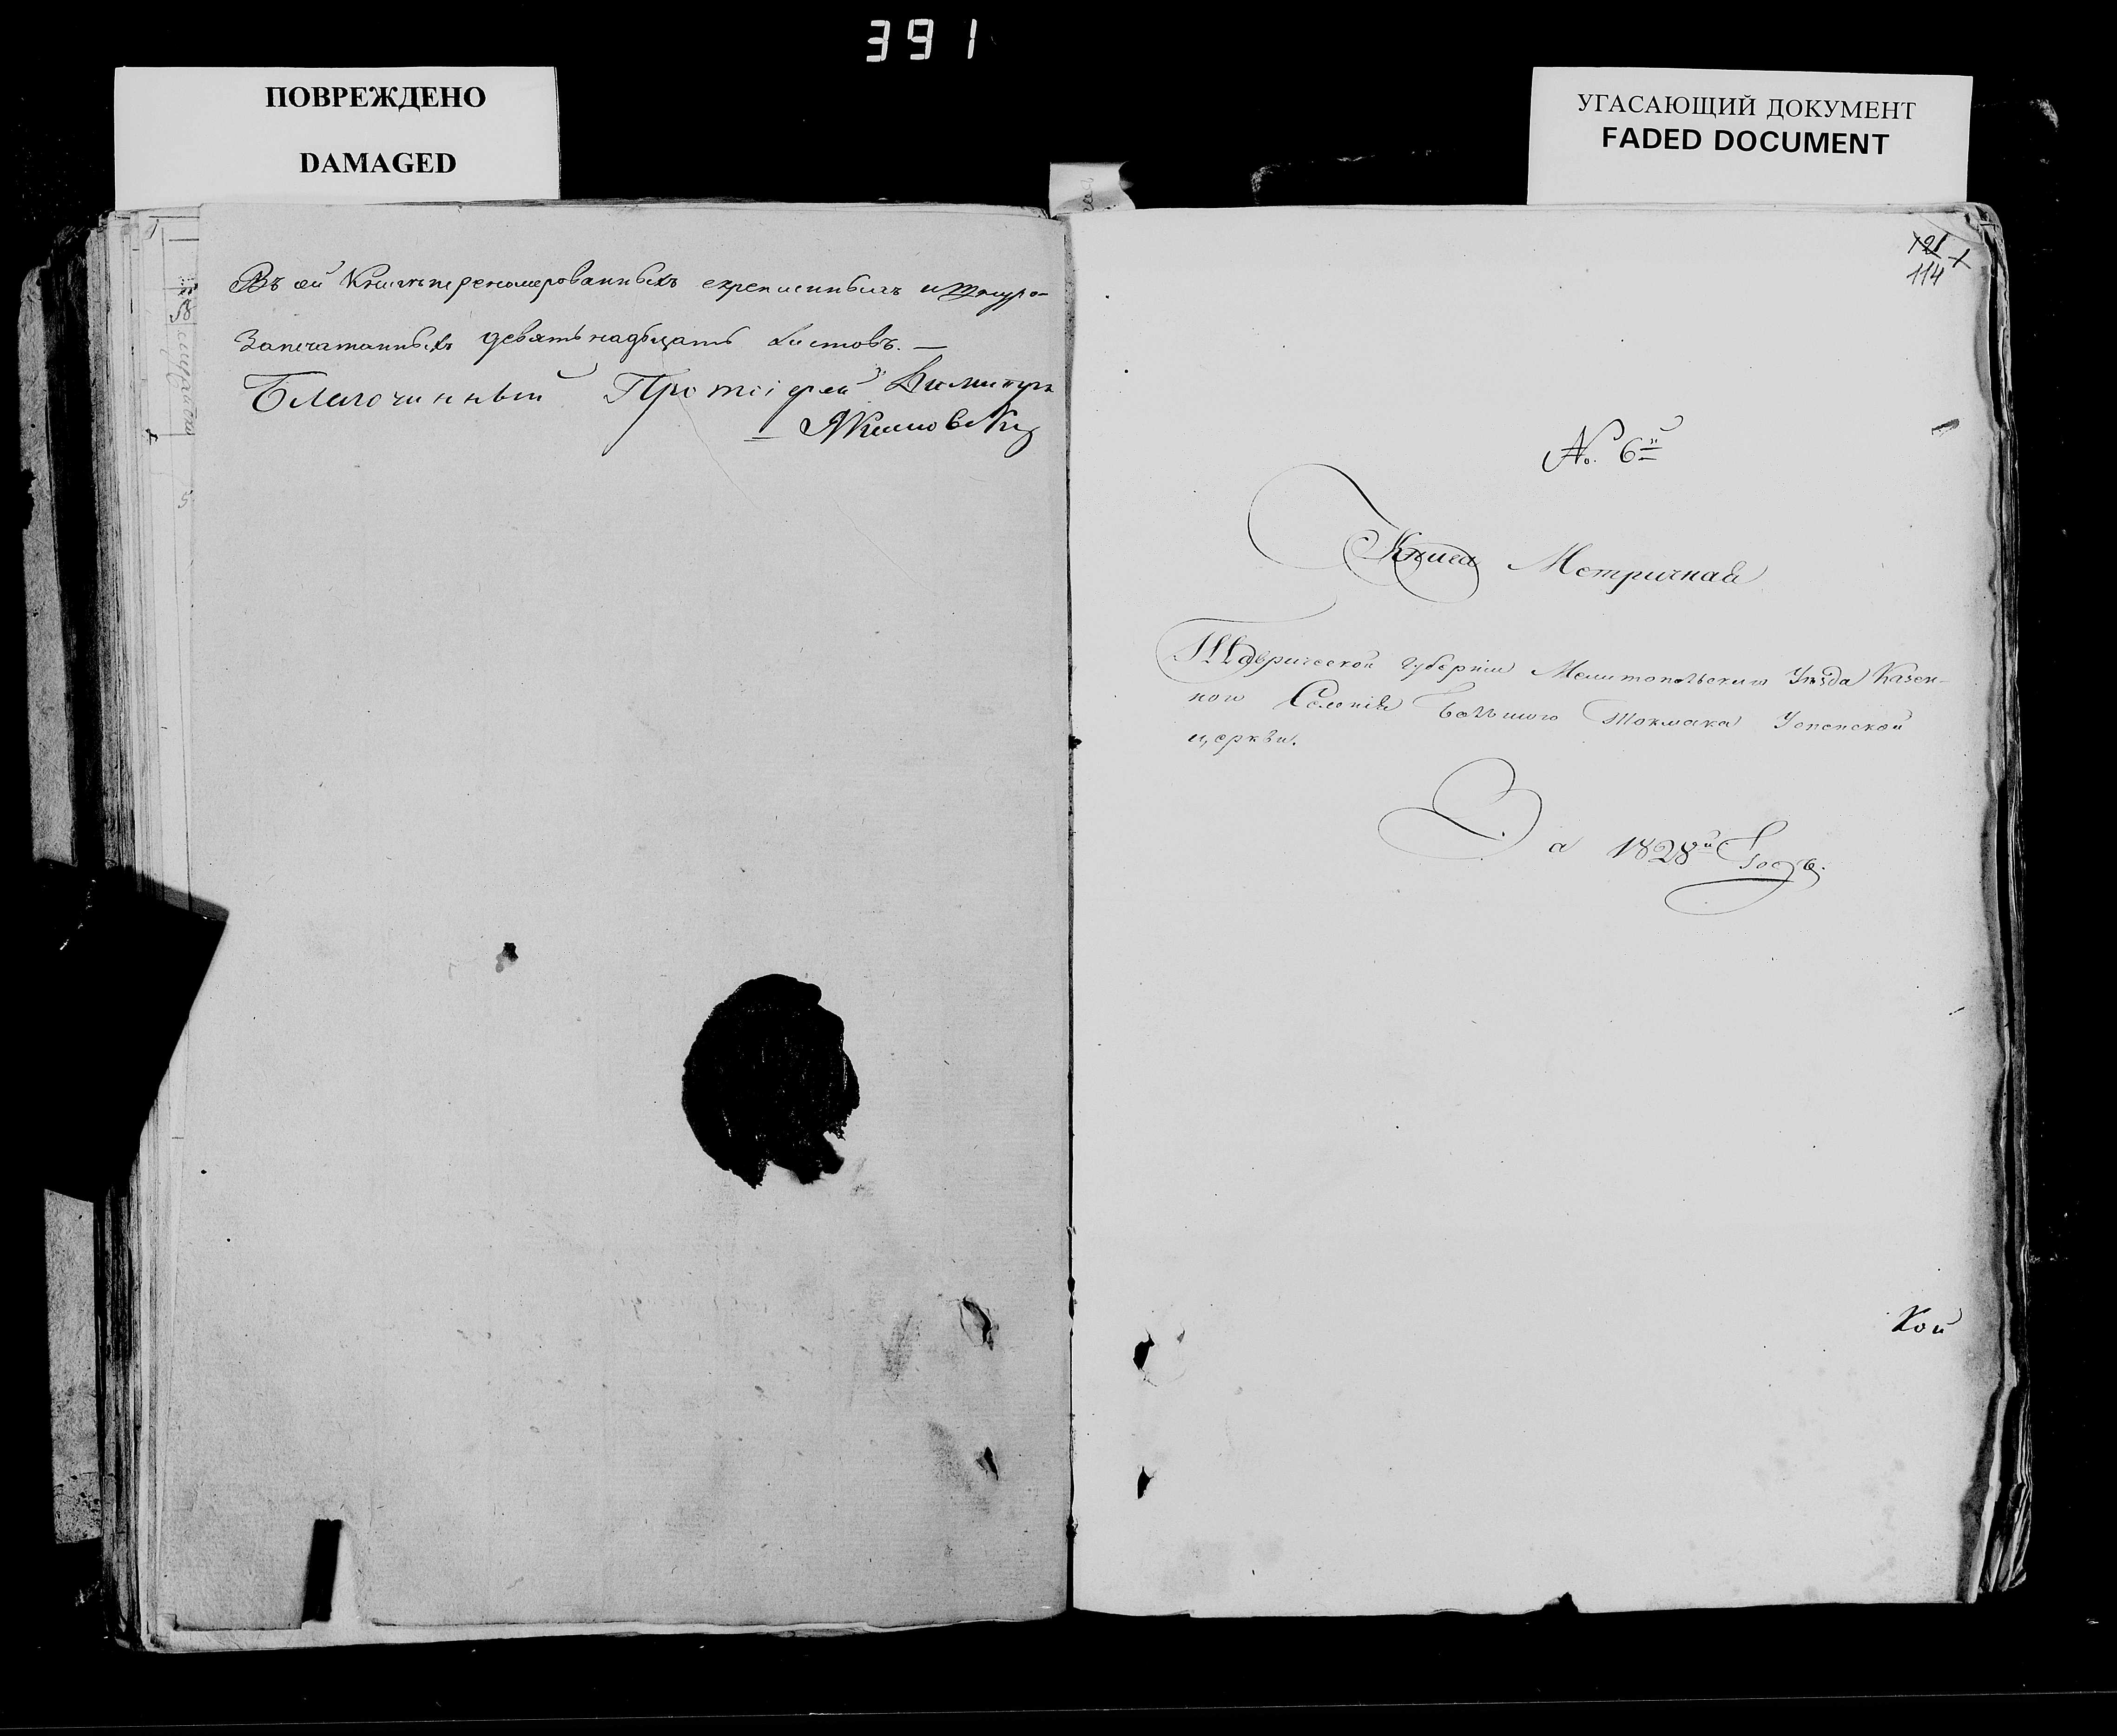 391
ПОВРЕЖДЕНО
DAMAGED
УГАСАЮЩИЙ ДОКУМЕНТ
FADED DOCUMENT
Въ сей Книгѣ перенумерованныхъ скрепленныхъ и шнуро-
запечатанныхъ девятьнадцать листовъ. —
Благочинный Протоіерей Димитрій
Якимовскій
121
114
№ 6й
Книга Метричная
Таврической губерніи Мелитопольскаго Уѣзда Казен-
ного Селенія Большого Токмака Успенской
церкви.
За 1828й Годъ.
Кой